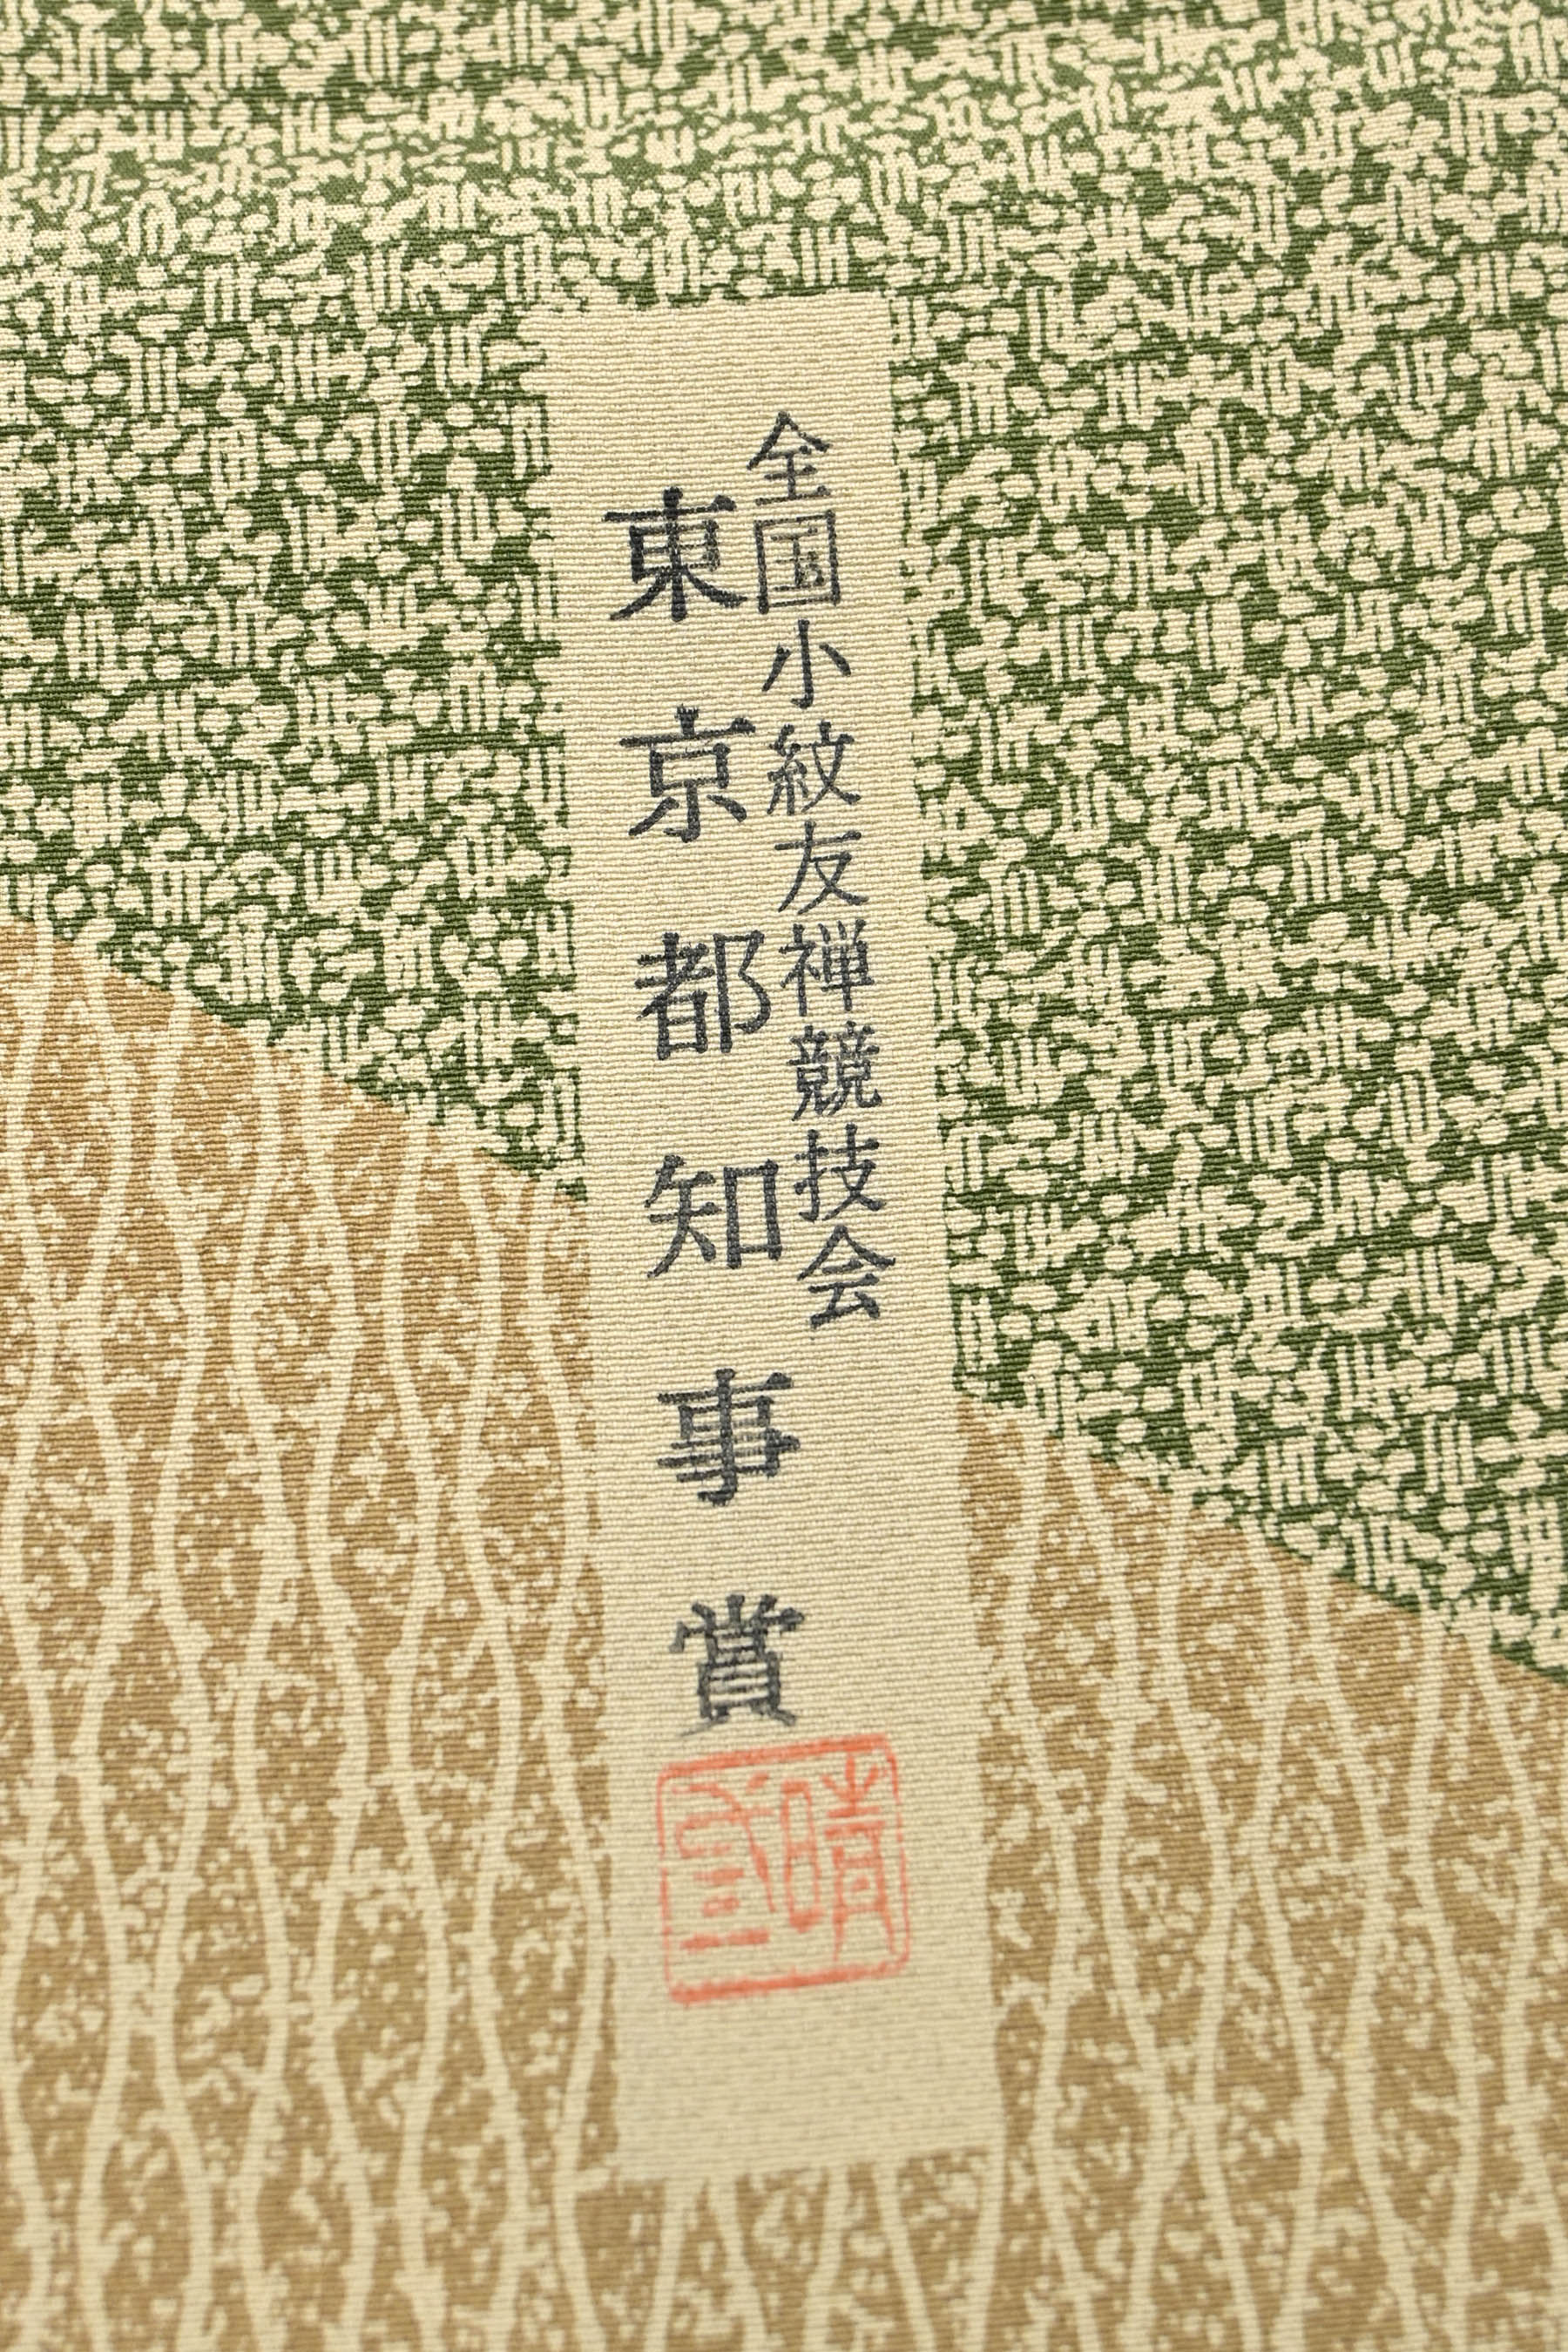 全国小紋友禅競技会
東京都知事賞